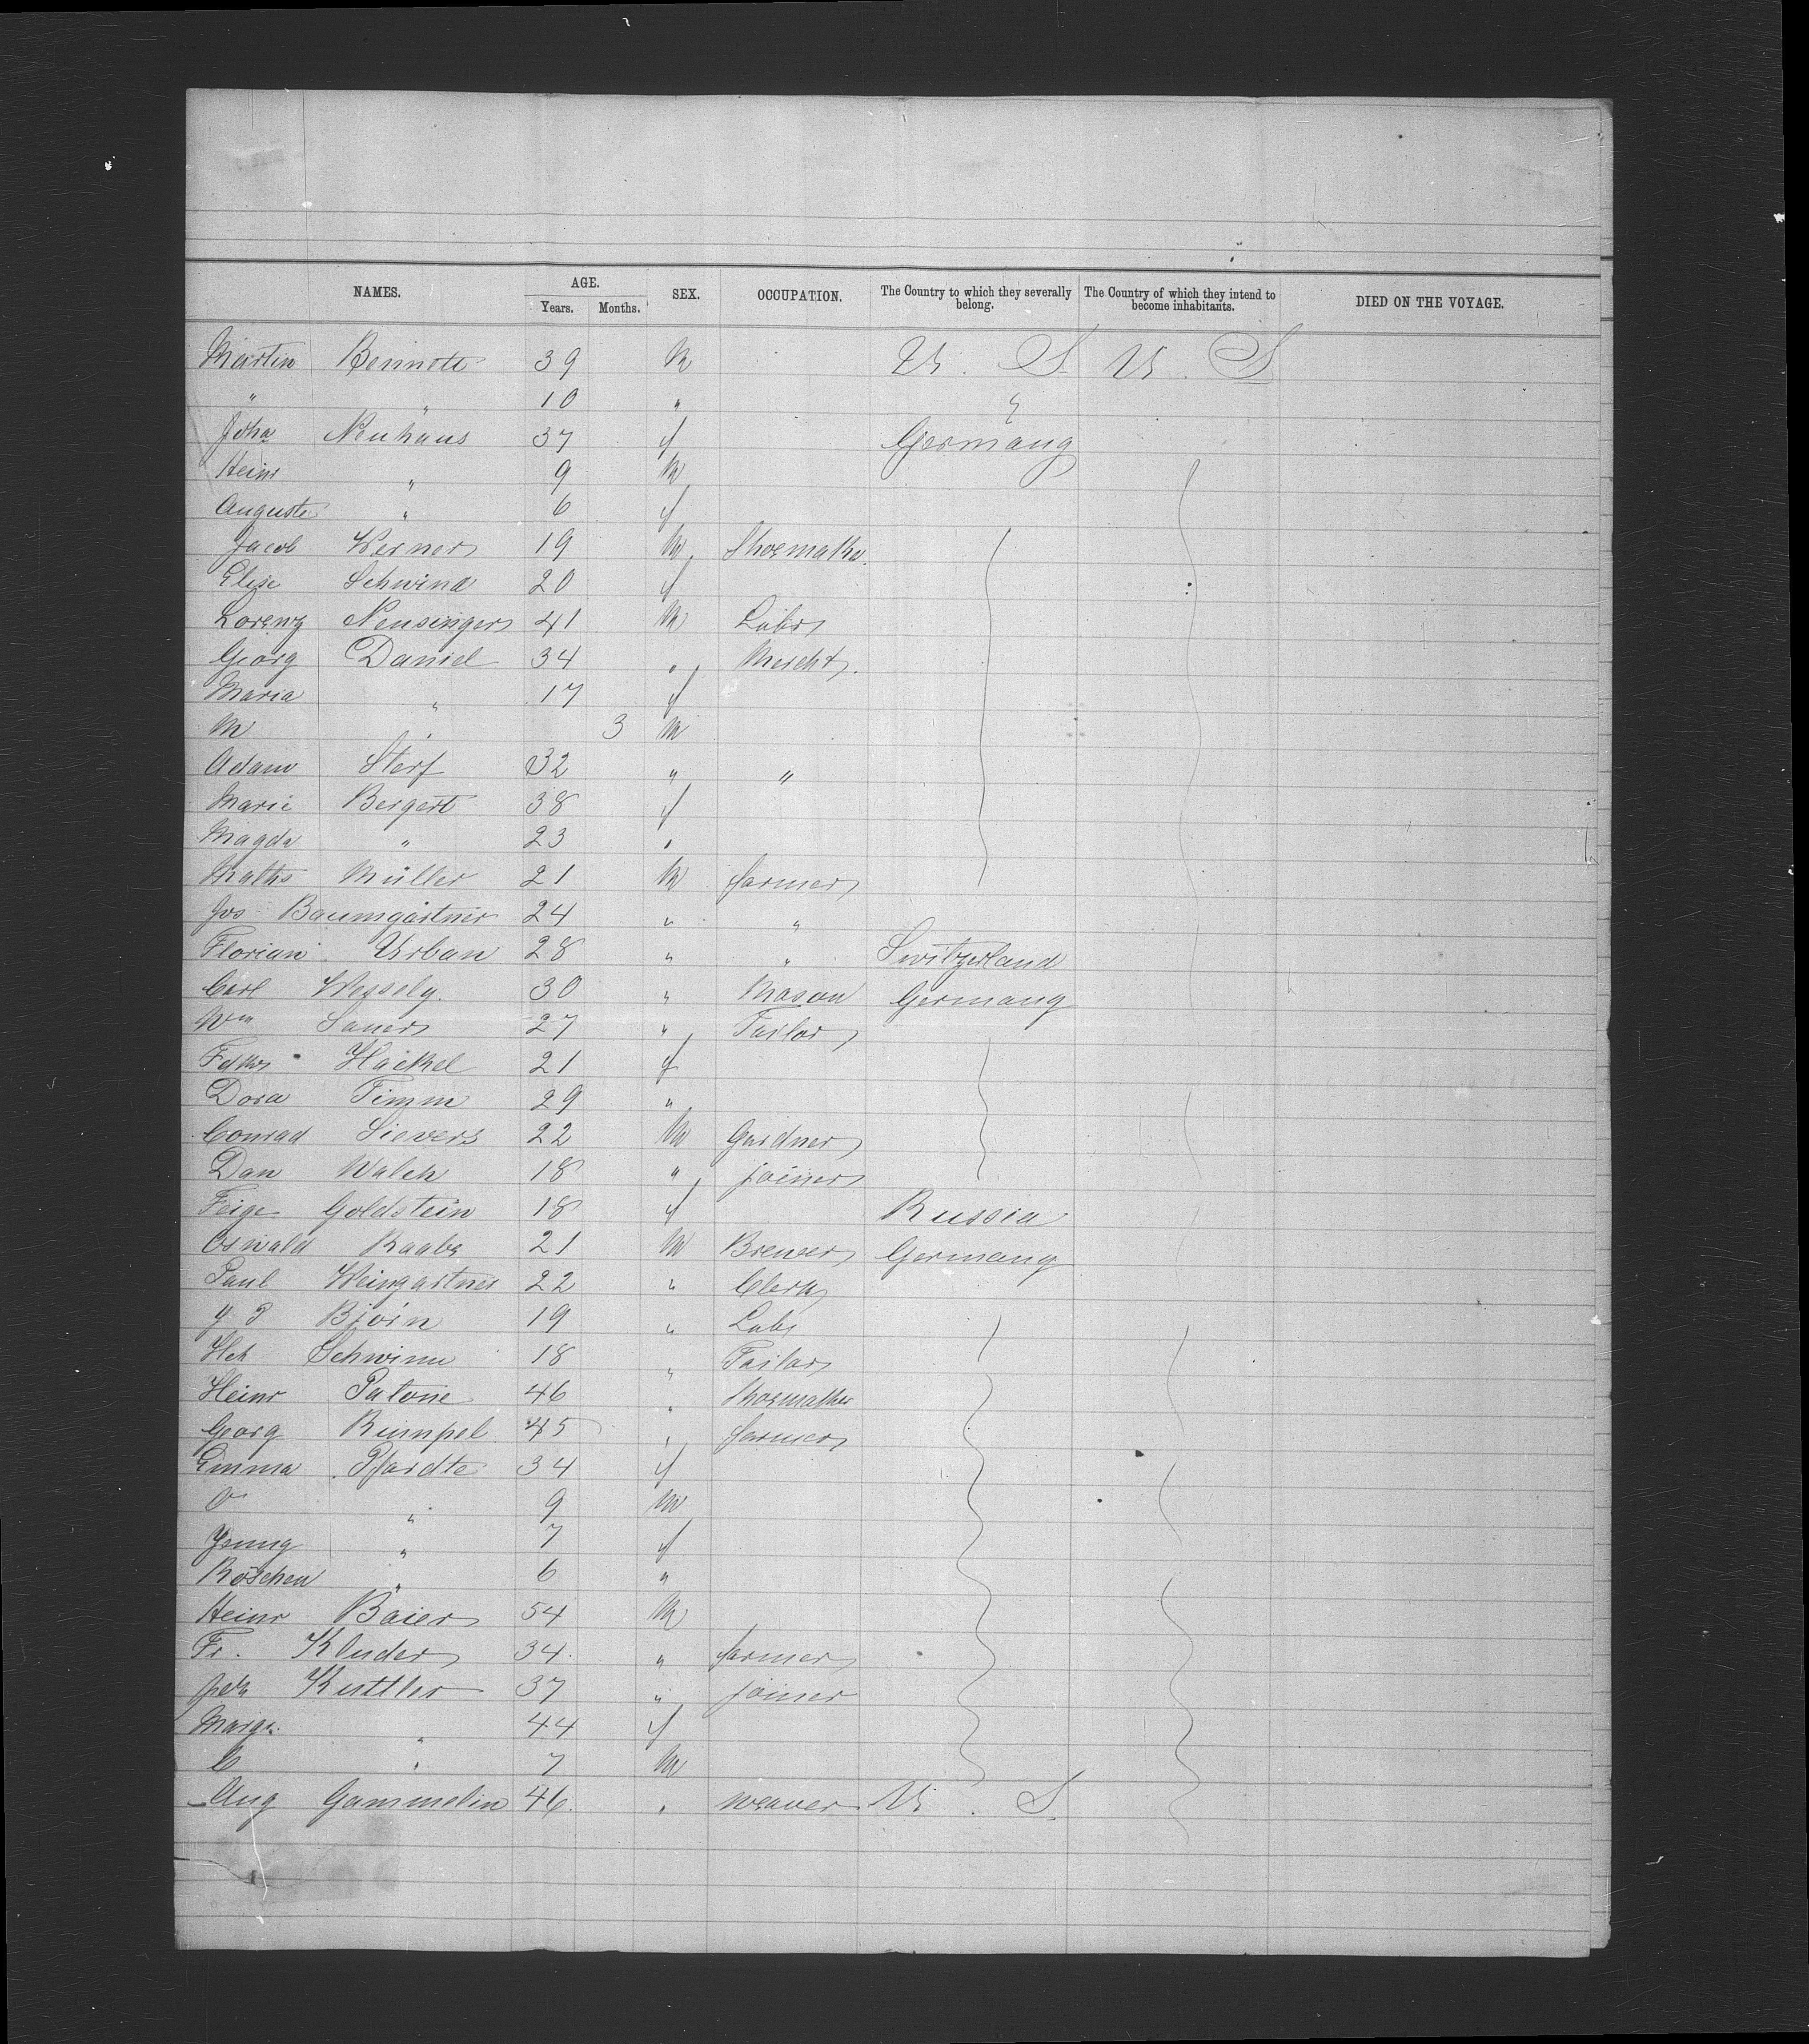 NAMES. AGE. SEX. OCCUPATION. The Country to which they severally belong. The Country of which they intend to become inhabitants. DIED ON THE VOYAGE.
Years. Months.
Martin Bennett 39 M U. S. U. S.
" " 10 " "
Joha Neuhaus 37 f Germany
Heinr " 9 M
Auguste " 6 f
Jacob Werner 19 M Shoemaker
Elise Schwind 20 f
Lorenz Neusinger 41 M Labr
Georg Daniel 34 " Mercht.
Maria " 17 f
M " 3 M
Adam Sterf 32 " "
Marie Bergert 38 f
Magda " 23 "
Maths Müller 21 M farmer
Jos Baumgärtner 24 " "
Florian Urban 28 " " Switzerland
Carl Wessely. 30 " Mason Germany
Wm Sauer 27 " Tailor
Häckel 21 f
Dora Timm 29 "
Conrad Sievers 22 M Gardner
Dan Walch 18 " joiner
Feige Goldstein 18 f Russia
Oswald Raabe 21 M Brewer Germany
Paul Weingartner 22 " Clerk
Björn 19 " Labr
Hch Schwinn 18 " Tailor
Heinr Patone 46 " Shoemaker
Georg Rumpel 45 " farmer
Emma Pfardte 34 f
O " 9 M
Jenny " 7 f
Röschen " 6 "
Heinr Baier 54 M
Fr. Kluder 34. " farmer
Kuttler 37 " joiner
Marga. " 44 f
C " 7 M
Aug Gammelin 46. " weaver U. S.